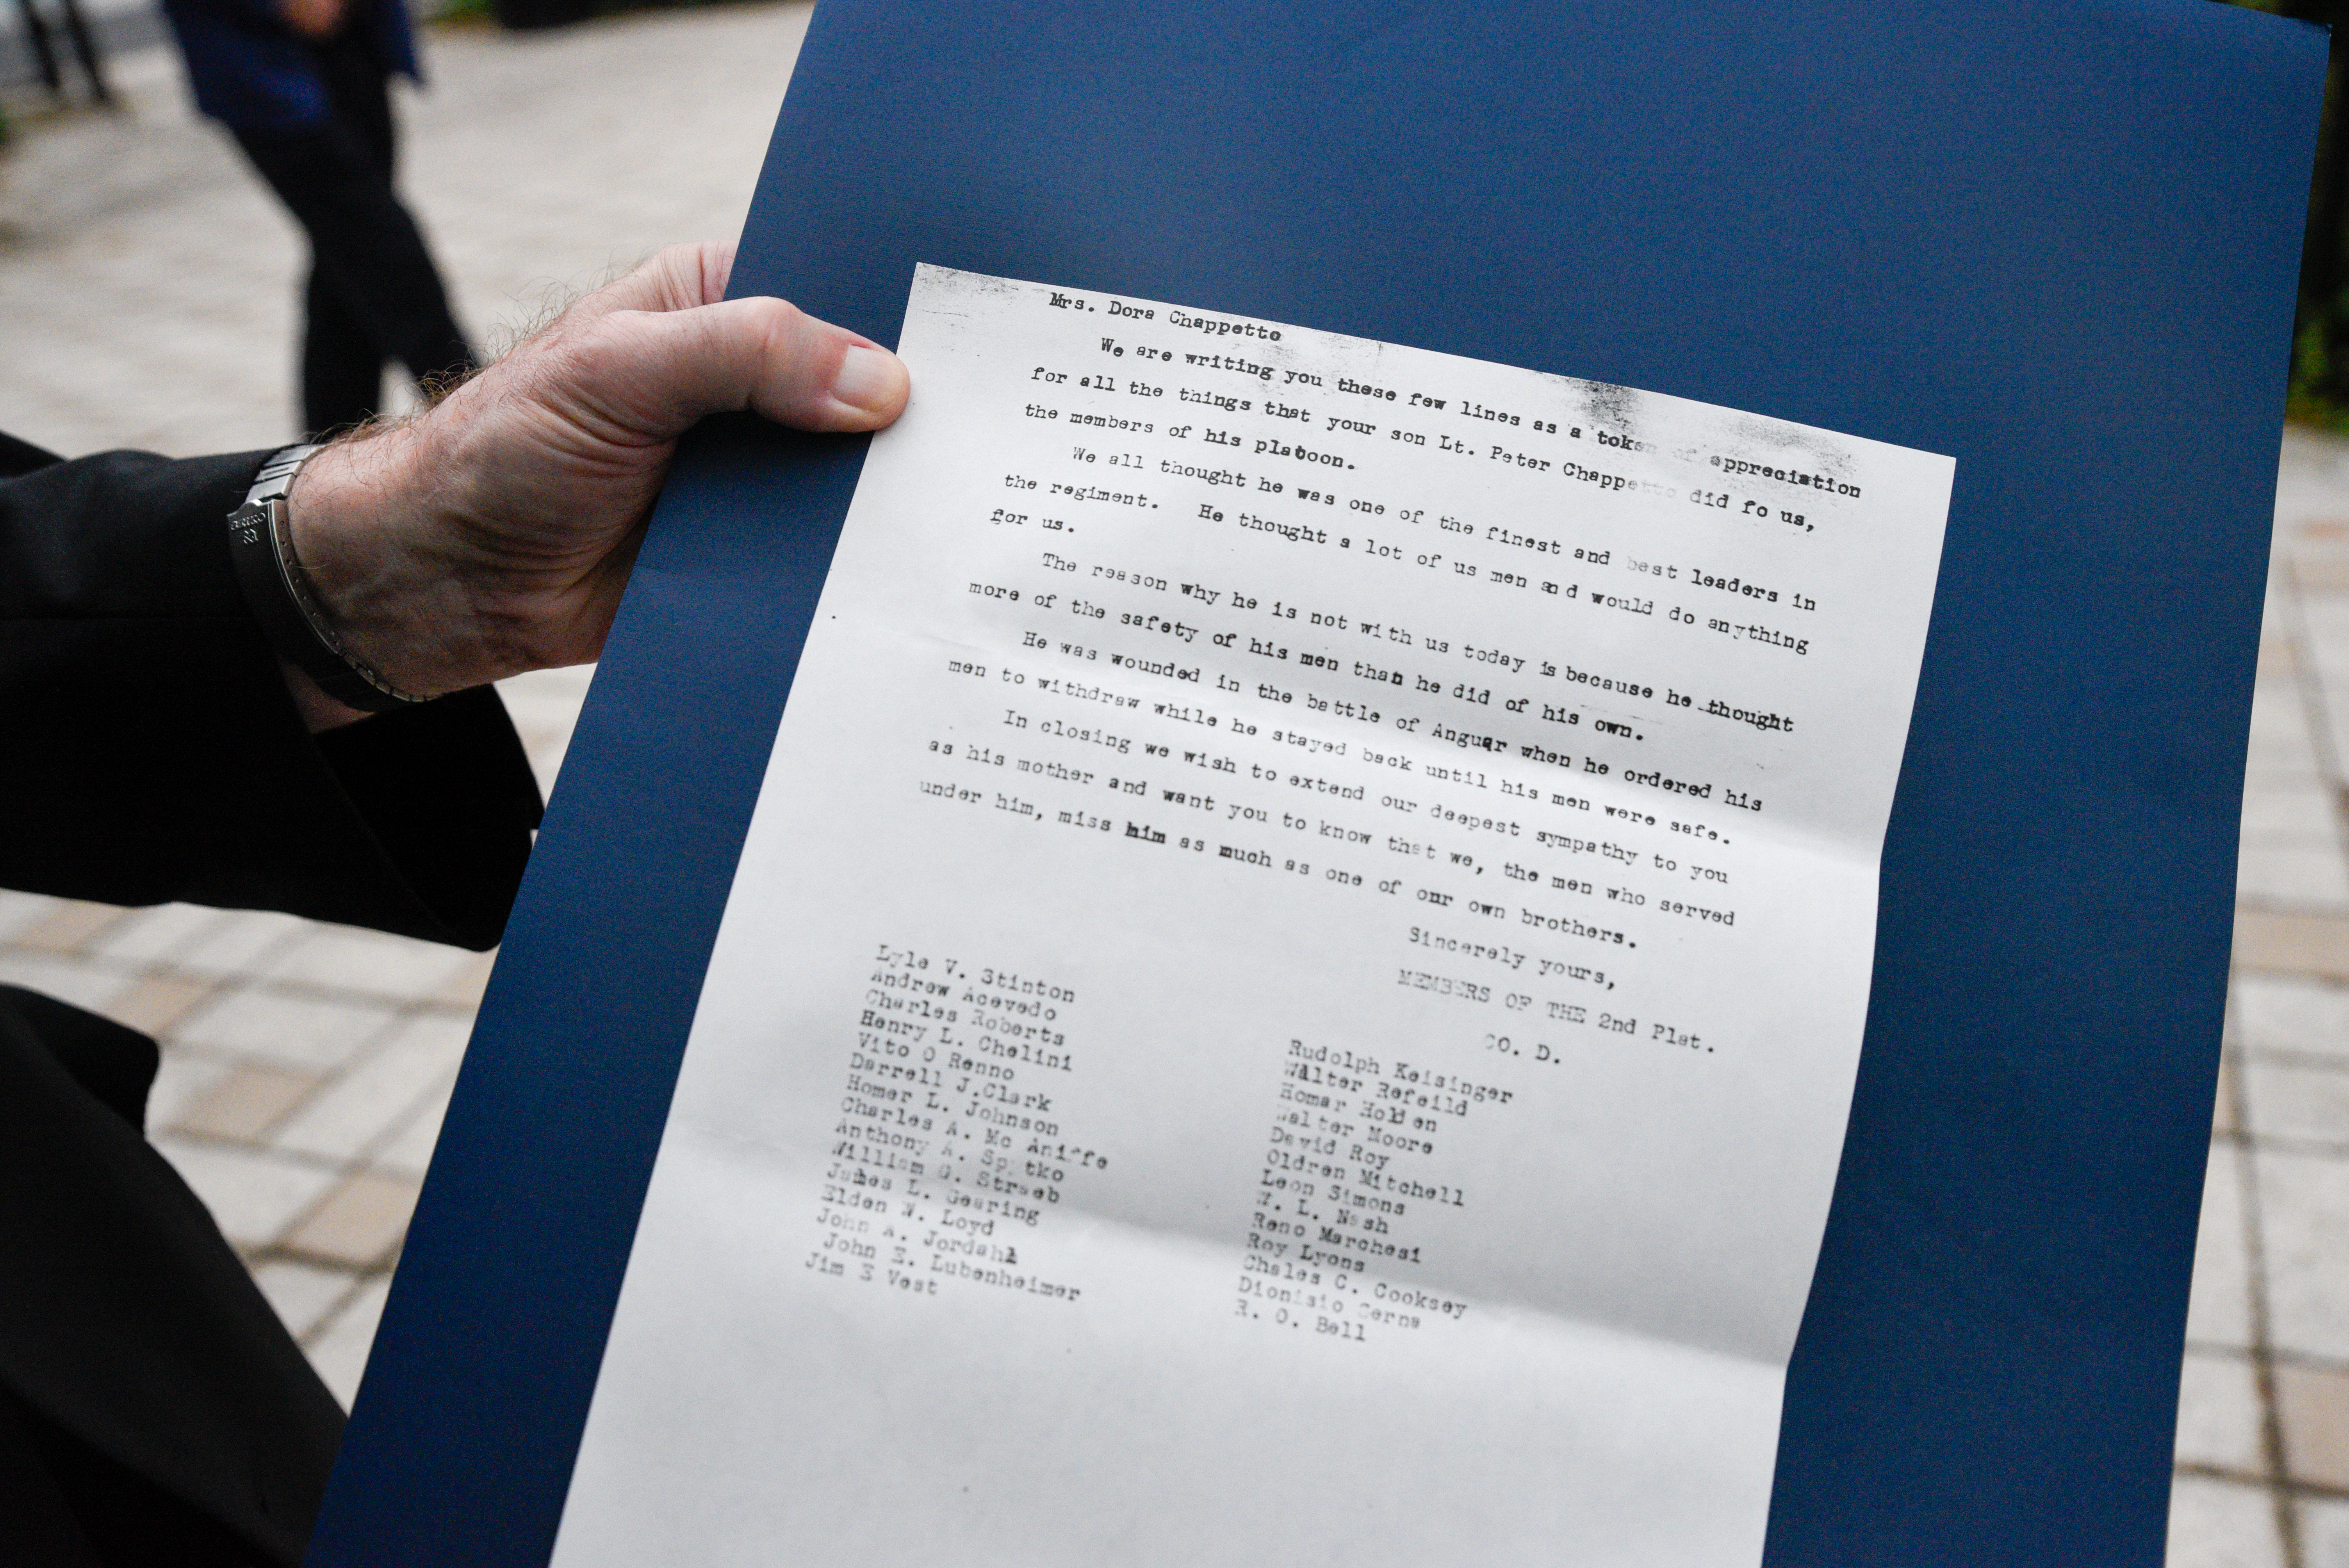 SEIKO
Mrs. Dora Chappetto
We are writing you these few lines as a token of appreciation
for all the things that your son Lt. Peter Chappetto did fo us,
the members of his platoon.
We all thought he was one of the finest and best leaders in
the regiment. He thought a lot of us men and would do anything
for us.
The reason why he is not with us today is because he thought
more of the safety of his men than he did of his own.
He was wounded in the battle of Anguar when he ordered his
men to withdraw while he stayed back until his men were safe.
In closing we wish to extend our deepest sympathy to you
as his mother and want you to know that we, the men who served
under him, miss him as much as one of our own brothers.
Sincerely yours,
MEMBERS OF THE 2nd Plat.
CO. D.
Lyle V. Stinton
Andrew Acevedo
Charles Roberts
Henry L. Chelini
Vito O Renno
Darrell J.Clark
Homer L. Johnson
Charles A. Mc
Anthony A.
William G. Straeb
James L. Gearing
Elden W. Loyd
John A. Jordahl
John E. Lubenheimer
Jim E Vest
Rudolph Keisinger
Walter Refeild
Homar Holden
Walter Moore
David Roy
Oldren Mitchell
Leon Simons
W. L. Nash
Reno Marchesi
Roy Lyons
Chales C. Cooksey
Dionisio Cerna
R. O. Bell